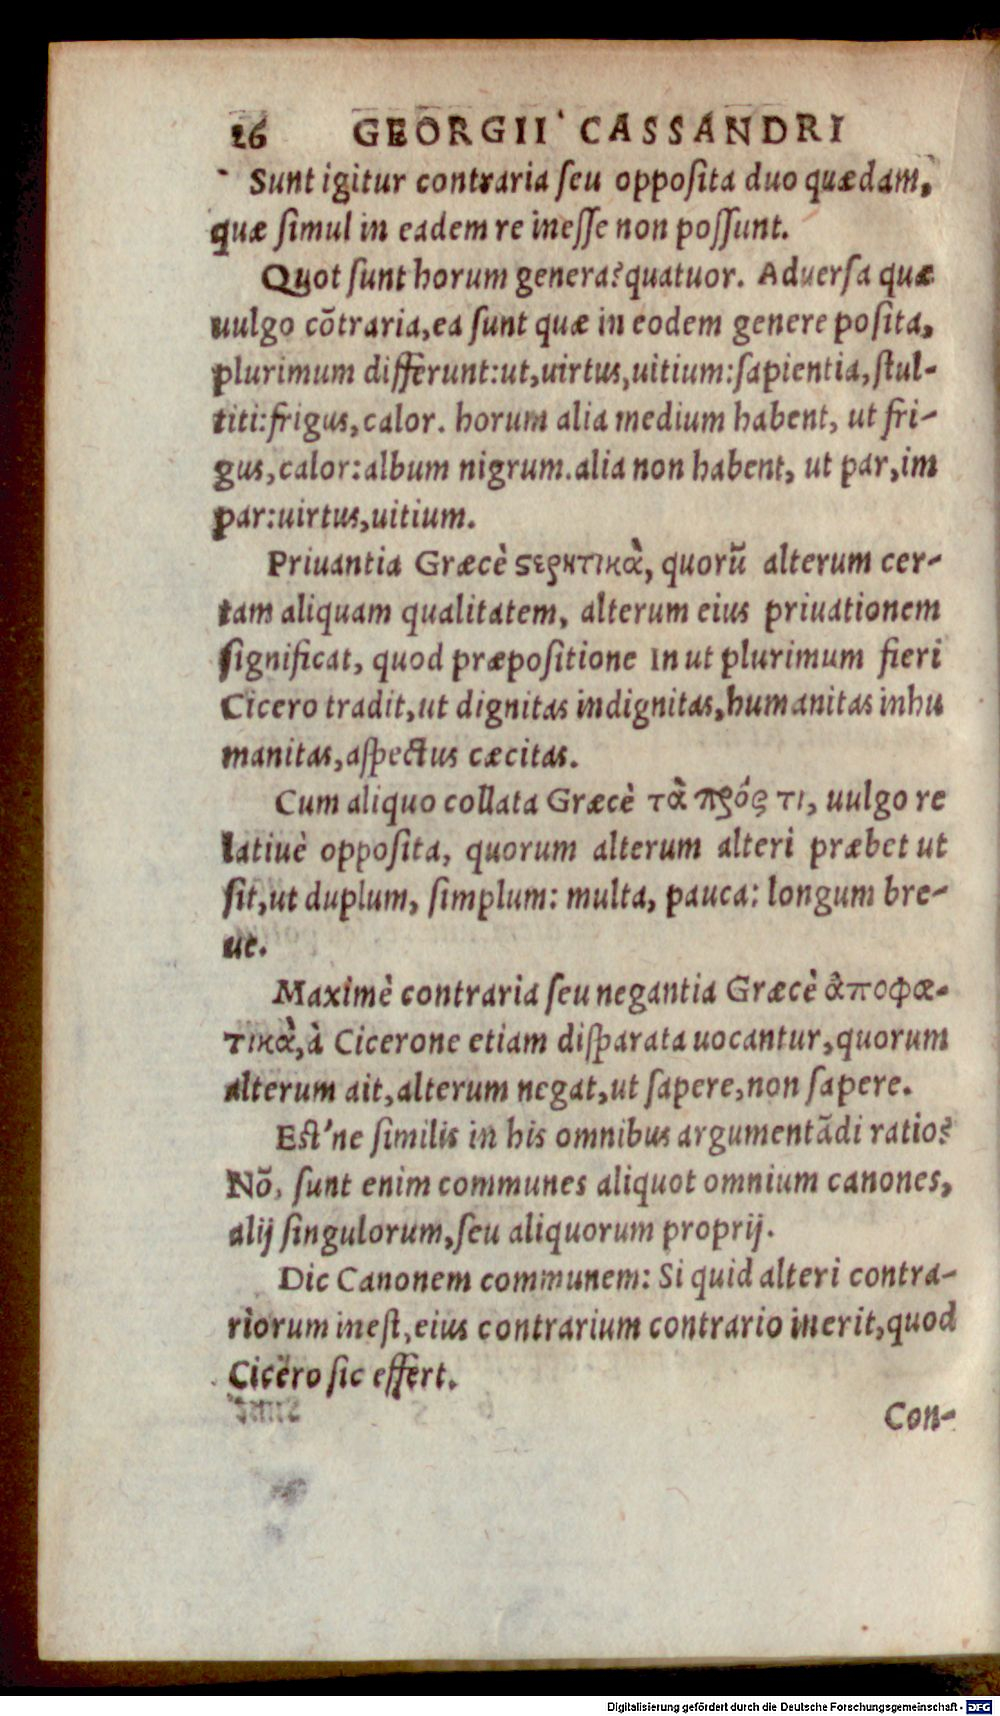 26 GEORGII CASSANDRI
Sunt igitur contraria ſeu oppoſita duo quædam,
quæ ſimul in eadem re ineſſe non poſſunt.
Quot ſunt horum genera? quatuor. Aduerſa quæ
uulgo cõtraria, ea ſunt quæ in eodem genere poſita,
plurimum differunt: ut, uirtus, uitium: ſapientia, ſtul-
titi: frigus, calor. horum alia medium habent, ut fri-
gus, calor: album nigrum. alia non habent, ut par, im
par: uirtus, uitium.
Priuantia Græcè ϛερητικὰ, quorũ alterum cer-
tam aliquam qualitatem, alterum eius priuationem
ſignificat, quod præpoſitione In ut plurimum fieri
Cicero tradit, ut dignitas indignitas, humanitas inhu
manitas, aſpectus cæcitas.
Cum aliquo collata Græcè τὰ πρός τι, uulgo re
latiuè oppoſita, quorum alterum alteri præbet ut
ſit, ut duplum, ſimplum: multa, pauca: longum bre-
ue.
Maximè contraria ſeu negantia Græcè ἀποφα-
τικὰ, à Cicerone etiam diſparata uocantur, quorum
alterum ait, alterum negat, ut ſapere, non ſapere.
Eſt'ne ſimilis in his omnibus argumentãdi ratio?
Nõ, ſunt enim communes aliquot omnium canones,
alij ſingulorum, ſeu aliquorum proprij.
Dic Canonem communem: Si quid alteri contra-
riorum ineſt, eius contrarium contrario inerit, quod
Cicero ſic effert.
Con-
Digitalisierung gefördert durch die Deutsche Forschungsgemeinschaft - DFG